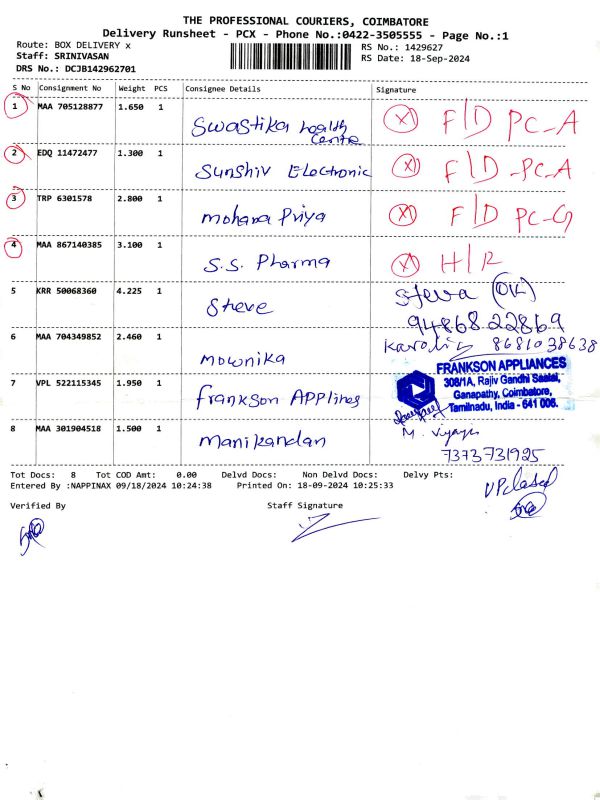 THE PROFESSIONAL COURIERS, COIMBATORE
Delivery Runsheet - PCX - Phone No.:0422-3505555 - Page No.:1
Route: BOX DELIVERY x
RS No.: 1429627
Staff: SRINIVASAN
RS Date: 18-Sep-2024
DRS No.: DCJB142962701
S No Consignment No Weight PCS Consignee Details Signature
1 MAA 705128877 1.650 1 Swastika health Centre (X) F/D PC-A
2 EDQ 11472477 1.300 1 Sunshiv Electronic (X) F/D -PC-A
3 TRP 6301578 2.800 1 Mohana Priya (X) F/D PC-G
4 MAA 867140385 3.100 1 S.S. Pharma (X) H/R
5 KRR 50068360 4.225 1 Steve
94868 22869
6 MAA 704349852 2.460 1 Mownika 8681038638
7 VPL 522115345 1.950 1 Frankson APPlines
FRANKSON APPLIANCES
308/1A, Rajiv Gandhi Saalai,
Ganapathy, Coimbatore,
Tamilnadu, India - 641 006.
8 MAA 301904518 1.500 1 Manikandan
7373731925
Tot Docs: 8 Tot COD Amt: 0.00 Delvd Docs: Non Delvd Docs: Delvy Pts:
Entered By :NAPPINAX 09/18/2024 10:24:38 Printed On: 18-09-2024 10:25:33
Verified By Staff Signature